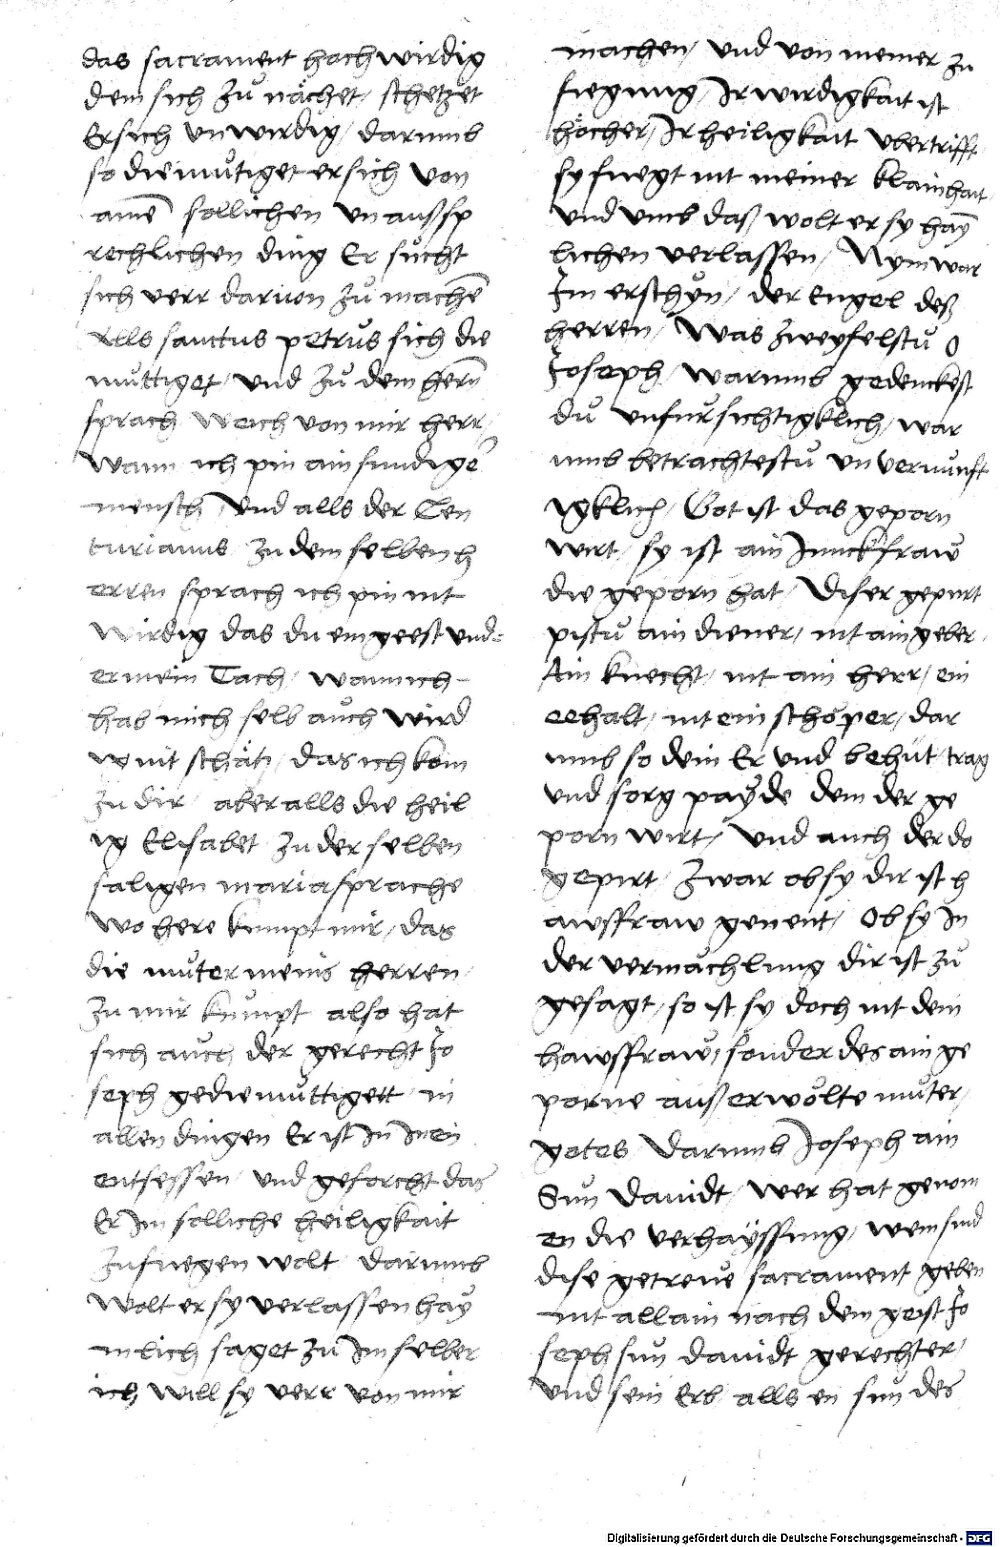 das sacrament hochwirdig
dem sich zů nächet / schetzet
Er sich vnwirdig / darumb
so diemůtiget er sich von
ainē sollichen vnaußsp
rechlichen ding Er sůcht
sich verr daruon zů machē
Alls sanctus petrus sich die
můttiget / vnd zů dem herñ
sprach weich von mir herr /
wann ich pin ain sundigē
mensch / Vnd alls der Cen
turianus zu dem selben h
erren sprach ich pin nit
wirdig das du eingeest vnd=
er mein Tach / wann ich
hab mich selb auch wird
w nit schätz / das ich kom
zu dir / aber alls die heil
ig Elisabet zu der selben
saligen maria sprache
wo here kumpt mir / das
die můter meins herren /
zu mir kůmpt also hat
sich auch der gerecht Jo
seph gediemůttigett in
allen dingen Er ist In Inen
entsessen / vnd geforcht das
Er Im solliche heiligkait
zufuegen wolt darumb
wolt er sy verlassen hay
mlich saget zu Im selber
ich will sy verr von mir
machen / vnd von meiner zu
fiegung / Ir wirdigkait ist
höcher / Ir heiligkait vbertrifft
sy fuegt nit meiner klainhait
vnd vmb daß wolt er sy haÿ
lichen verlassen / Nym war
Im erschyn / der Engel deß
herren / Was zweyfelstů O
Joseph / warumb gedenckest
dů vnfůrsichtigklich / war
umb betrachtestů vnvernunft
igklich / Got ist das geporn
wirt / sy ist ain Junckfraw
die geporn hat / Diser gepurt
pistů ain diener / nit ain geber /
Ain knecht / nit ain herr / ein
eehalt / nit ein schöper / dar
umb so dein Er vnd behüt / trag
vnd sorg paÿde dem der ge
porn wirt / Vnd auch der do
gepirt / Zwar ob sy dir ist h
awsffraw genent / Ob sy In
der vermächlung dir ist zů
gesagt / so ist sy doch nit dein
hawsffraw / sonder des ain ge
porne außerwölte můter /
gotes / Darumb Joseph ain
Sun Dauidt / wer hat genom
en die verhaÿssung / wem sind
dise getreue sacrament geben
nit allain nach dem geist Jo
seph sun dauidt gerechter /
vnd sein Erb alls en sun des
Digitalisierung gefördert durch die Deutsche Forschungsgemeinschaft - DFG